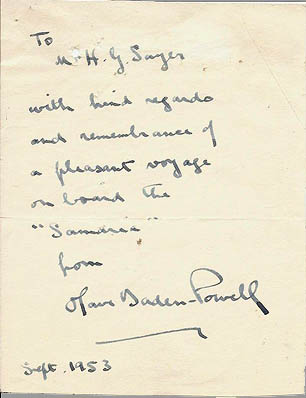 To
Mr H. G. Sayer
with kind regards
and remembrance of
a pleasant voyage
on board the
"Samaria"
from
Olave Baden-Powell
Sept. 1953